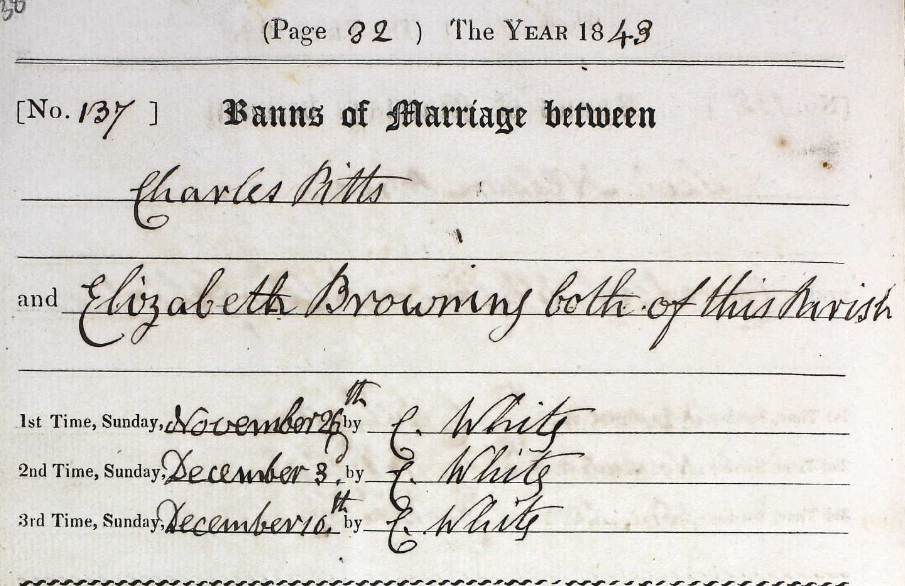 (Page 32 ) The YEAR 1843
[No. 137 ] Banns of Marriage between
Charles Pitts
and Elizabeth Browning both of this Parish
1st Time, Sunday, November 26th by C. White
2nd Time, Sunday, December 3d by C. White
3rd Time, Sunday, December 10th by C. White